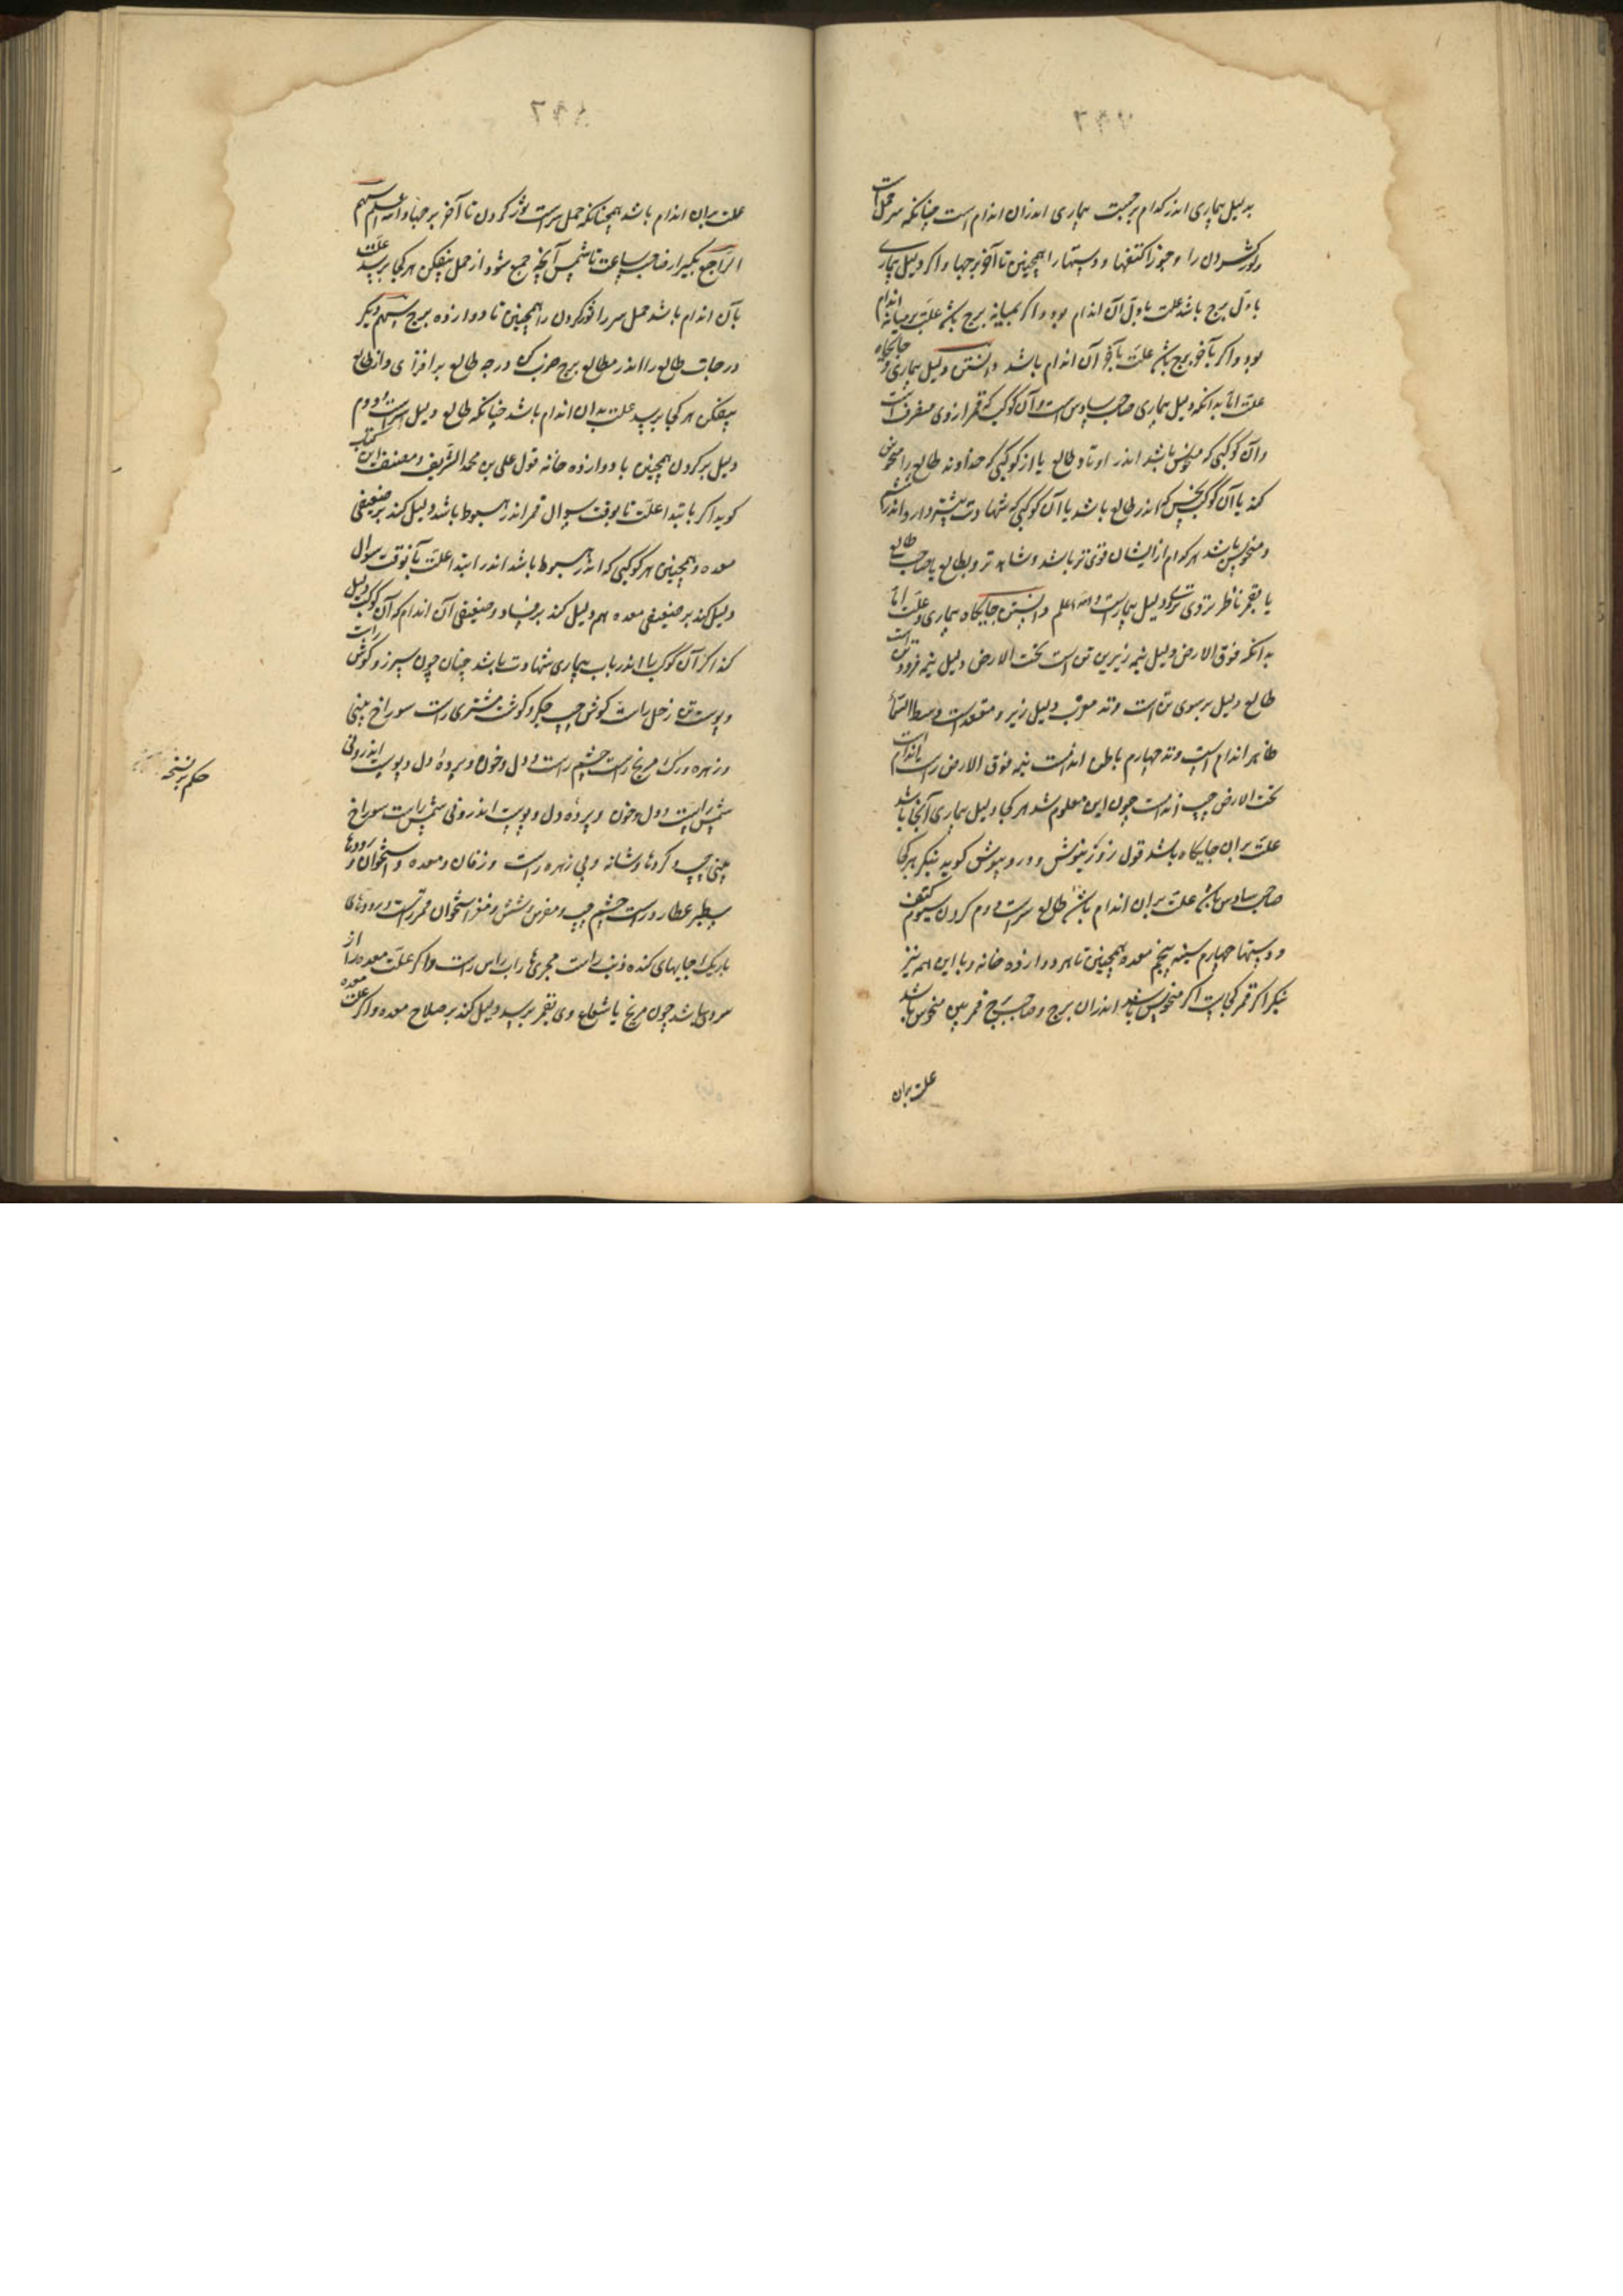 بدلیل بیماری اندر کدام برجست بیماری اندران اندام است چنانکه سر حمل است
و ثور گردن را و جوزا کتفها و دستها را همچنین تا آخر برجها و اگر دلیل بیماری
باول برج باشد علت باول آن اندام بود و اگر بمیانه برج باشد علت بر میانه اندام
بود و اگر بآخر برج باشد علت بآخر آن اندام باشد دانستن دلیل بیماری و جایگاه
علت اما بدانکه دلیل بیماری صاحب سادس است و آن کوکب که قمر از وی منصرف است
و آن کوکبی که منحوس باشد اندر اوتاد طالع یا از کوکبی که خداوند طالع را منحوس
کند یا آن کوکب نحس که اندر طالع باشد یا آن کوکبی که شهادت بیشتر دارد و اندر
و منحوس باشد هر کدام از ایشان قوی تر باشد و شاهد تر و بطالع یا صاحب طالع
یا بقمر ناظر تر وی دلیل بیمار است والله اعلم دانستن جایگاه بیماری و علت اما
بدانکه فوق الارض دلیل نیمه زیرین تن است تحت الارض دلیل نیمه فرود تن است
طالع دلیل سر سوی تن است وتد مغرب دلیل زیر و مقعد است وسط السماء
ظاهر اندام است وتد چهارم باطن اندامست نیمه فوق الارض راست اندام است
تحت الارض چپ اندامست چون این معلوم شد هر کجا دلیل بیماری آنجا باشد
علت بران جایگاه باشد قول روزینوش و درونیوش گوید بنگر هر کجا
صاحب سادس باشد علت بران اندام باشد طالع سر است دوم گردن سیوم کتف
و دستها چهارم سینه پنجم معده همچنین تا هر دوازده خانه و با این هم نیز
بنگر اگر قمر کجاست اگر منحوس باشد اندران برج و صاحب برج قمر بین منحوس باشد
علت بران
علت بران اندام باشد همچنانکه حمل سر است ثور گردن تا آخر برجها والله اعلم سهم
الراجع بگیر از صاحب ساعت تا شمس آنچه جمع شود از حمل بیفکن هر کجا برسد علت
بآن اندام باشد حمل سر را ثور گردن را همچنین تا دوازده برج سهم دیگر
درجات طالع را اندر مطالع برج ضرب کن درجه طالع بر افزای و از طالع
بیفکن هر کجا برسد علت بدان اندام باشد چنانکه طالع دلیل سر است و دوم
دلیل بر گردن همچنین با دوازده خانه قول علی بن محمد الشریف و مصنف این کتاب
گوید اگر بابتدا علت تا بوقت سوال قمر اندر هبوط باشد دلیل کند بر ضعیفی
معده و همچنین هر کوکبی که اندر هبوط باشد اندر ابتدا علت تا بوقت سوال
دلیل کند بر ضعیفی معده هم دلیل کند بر فساد و ضعیفی آن اندام که آن کوکب دلیل
کند اگر آن کوکب را اندر باب بیماری شهادت باشد چنان چون سپرز و گوش راست
و پوست تن زحل راست گوش چپ جگر و گوشت مشتری راست سوراخ بینی
و زهره و رگ مریخ راست چشم راست و دل و خون و پرده دل و پوست اندرونی
شمس راست و دل و خون و پرده دل و پوست اندرونی شمس راست سوراخ
بینی چپ و گردها و شانه و پی زهره راست و زفان و معده و استخوان و رودها
سطبر عطارد راست چشم چپ و مفرس و شش و مغز استخوان قمر راست و رودهای
باریک جایهای گنده ذنب راست مجری ها را سراس راست و اگر علت معده را از
سردی باشد چون مریخ یا شعاع وی بقمر برسد دلیل کند بر صلاح معده و اگر علت معده
حکم بر نسخه